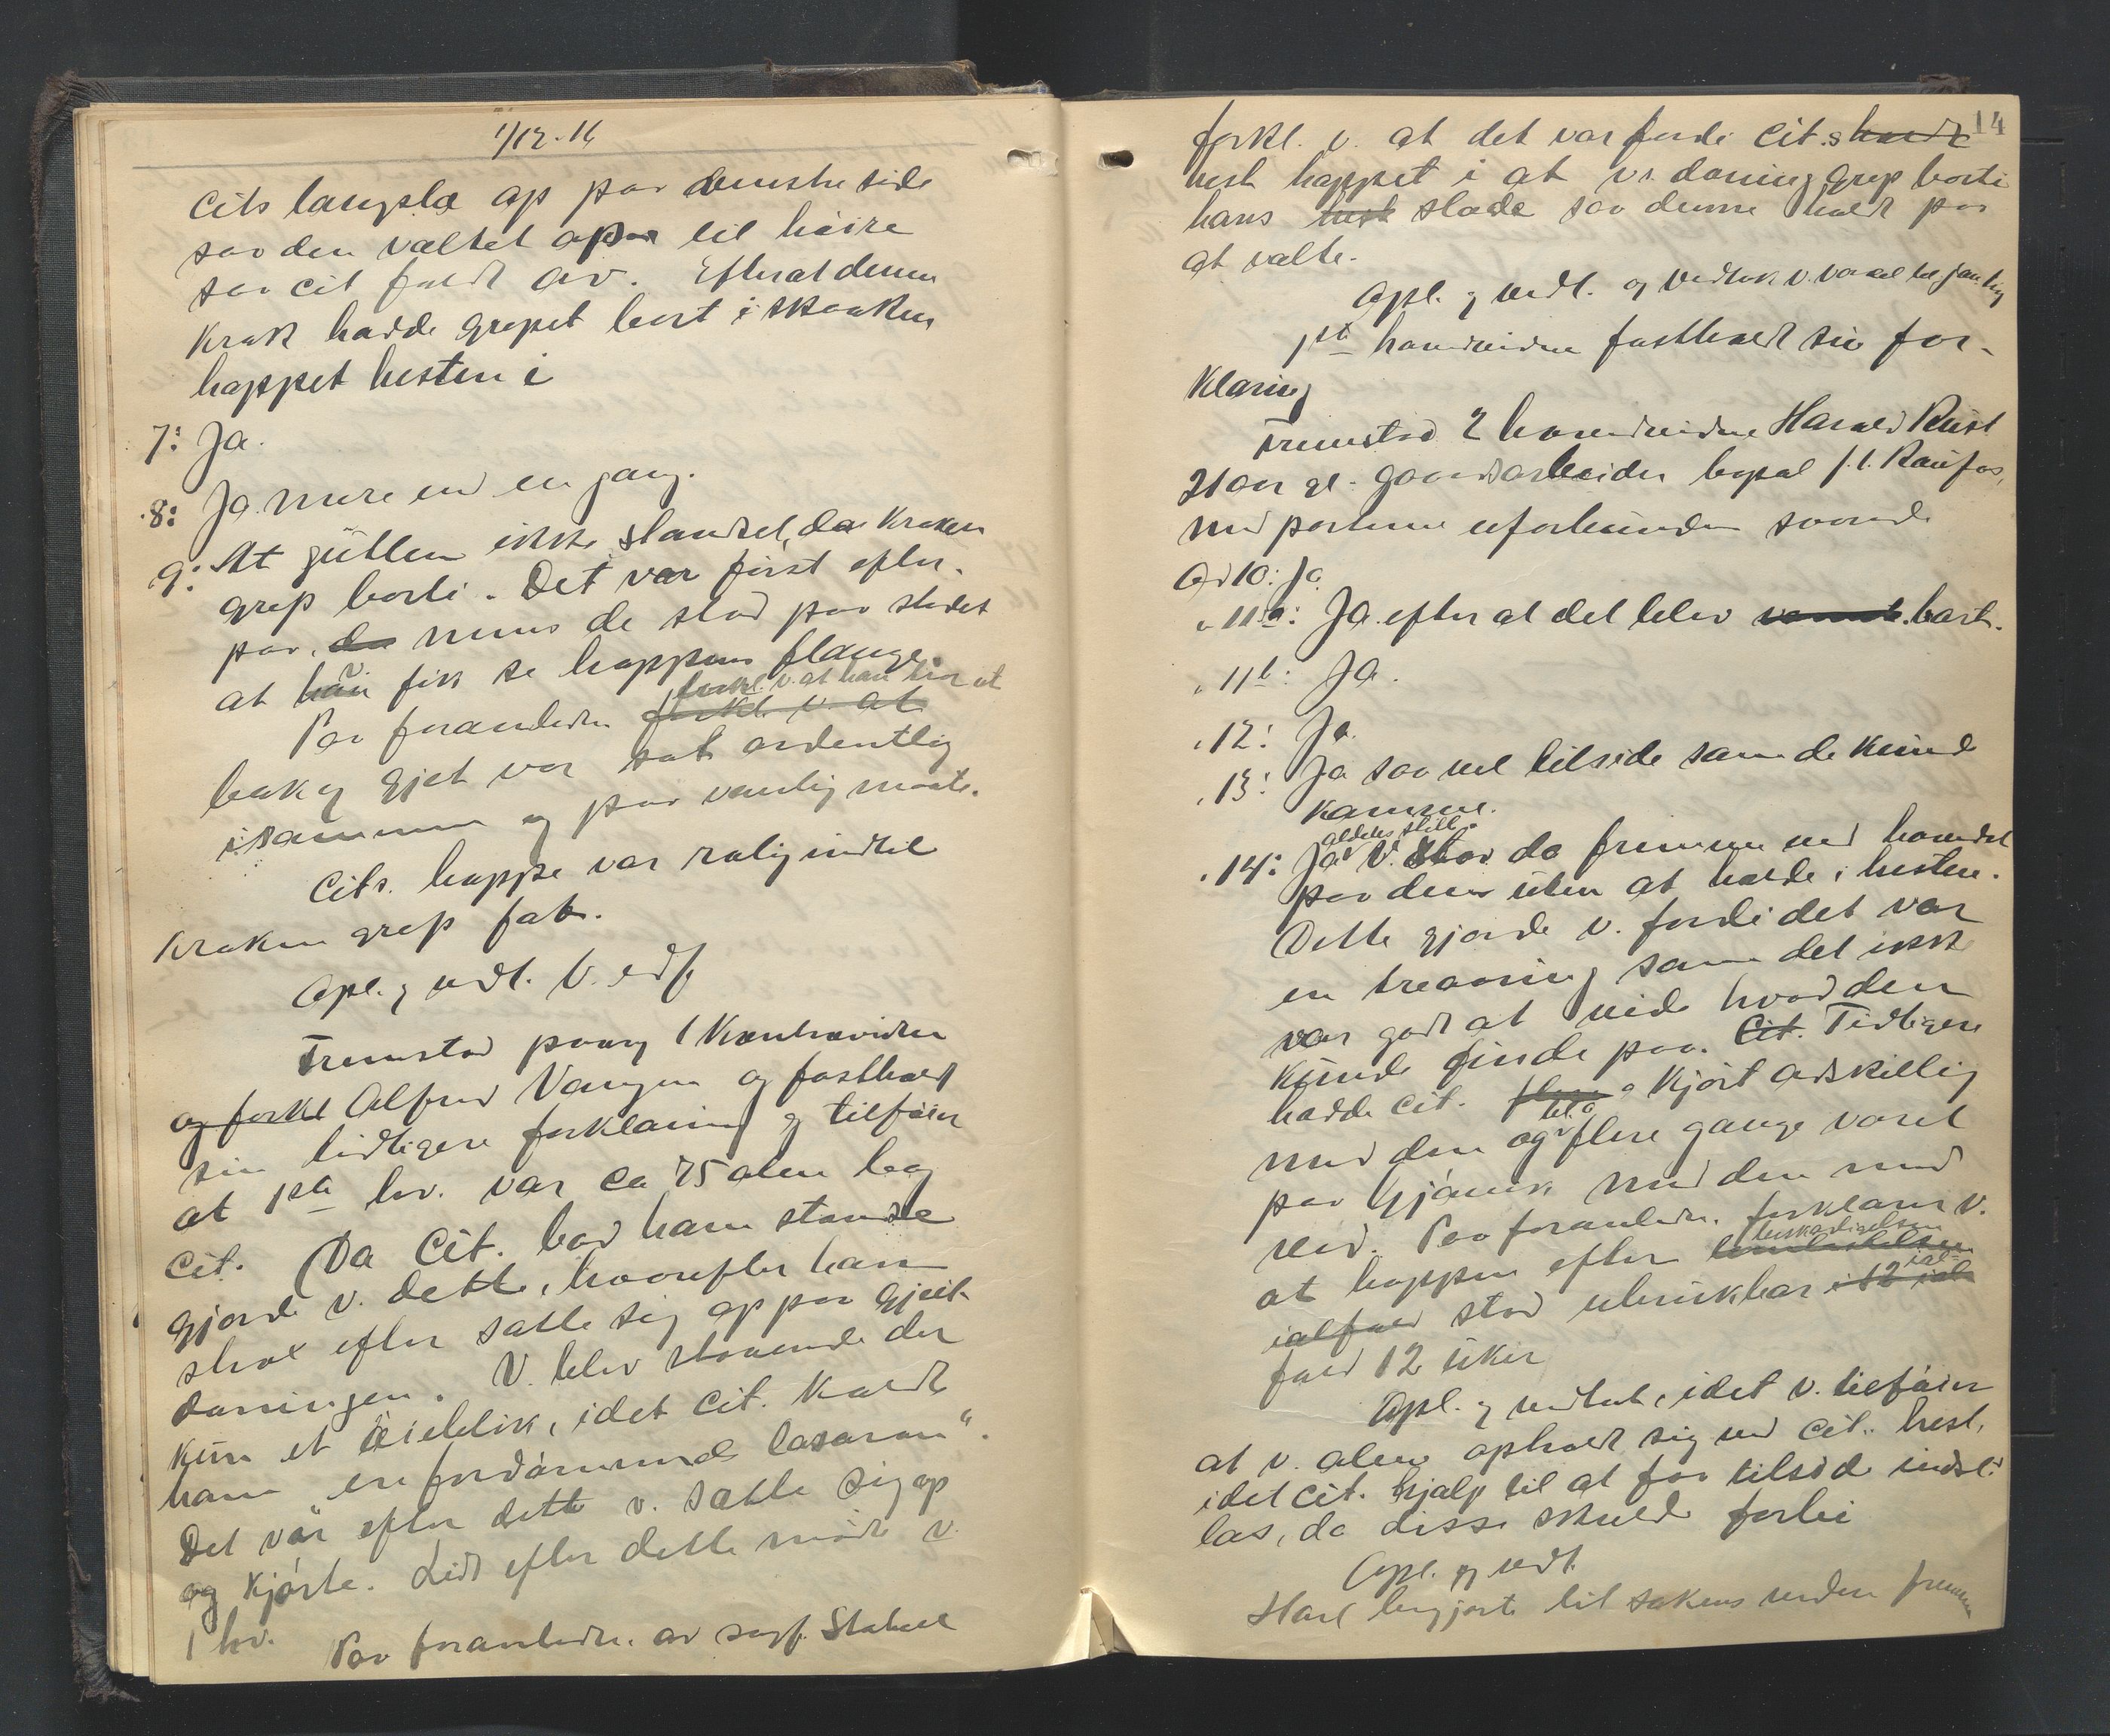 1/12-16
Cits langslæ op paa venstre side
saa den væltet opaa til høire
saa cit faldt av. Efterat denne
krok hadde grepet bort i skaaken
hoppet hesten i
7: Ja.
8: Ja. mere end en gang.
9: At gutten ikke standset, da kroken
grep borti. Det var først efter-
paa, da mens de stod paa stedet
at han fik se hoppens flange.
forkl. v. at han tror at
Paa foranledn. forkl. v. at
bak og gjet var sat ordentlig
isammen og paa vanlig maate.
Cits. hoppe var rolig indtil
kroken grep fat.
Opl. og vedt. V. edf.
Fremstod paany 1 Kontravidne
og forkl Alfred Vangen og fastholdt
sin tidligere forklaring og tilføier
at 1ste hv. var ca 75 alen bag
Cit. Da Cit. bad ham standse
gjorde v. dette, hvorefter han
strax efter satte sig op paa gjeit-
doningen. V. blev staaende der
kun et øieblik, idet Cit. kaldt
ham "en fordømmende lasaron".
Det var efter dette v. satte sig op
og kjørte. Lidt efter dette møtte v.
1 hv.
Paa foranledn. av sagf. Stabell
14
forkl. v. at det var fordi Cit.s hardt
hest hoppet i at vs doning grep borti
hans hest slæde saa denne holdt paa
at vælte.
Opl. og vedt. og vedtok v.
1ste hovedvidne fastholdt sin for-
klaring
Fremstod 2 hovedvidne Harald Rust
21 aar gl. gaardsarbeider bopæl p.t. Raufos,
med parterne uforbunden svarende
Ad 10: Ja
" 11a: Ja. efter at det blev bært.
" 11b: Ja.
" 12: Ja.
" 13: Ja saa vel tilside som de kunde
komme.
aldeles still.
" 14: Ja v. stod da fremme ved hovedet
paa den uten at holde i hesten.
Dette gjorde v. fordi det var
en treaaring som det ikke
var godt at vide hvad den
kunde finde paa. Cit. Tidligere
hadde cit. kjørt adskillig
med den og bl.a. flere gange været
paa Gjøvik med den med
ved. Paa foranledn. forklarer v.
beskadigelsen
at hoppen efter
ialfald stod ubrukbar i 12 ial-
fald 12 uker
Opl. og vedtat, idet v. tilføier
at v. alene opholdt sig ved Cit.s hest,
idet Cit. hjalp til at faa tilside
las, da disse skulde forbi
Opl. og vedt.
Han begjærte til sakens videre fremme